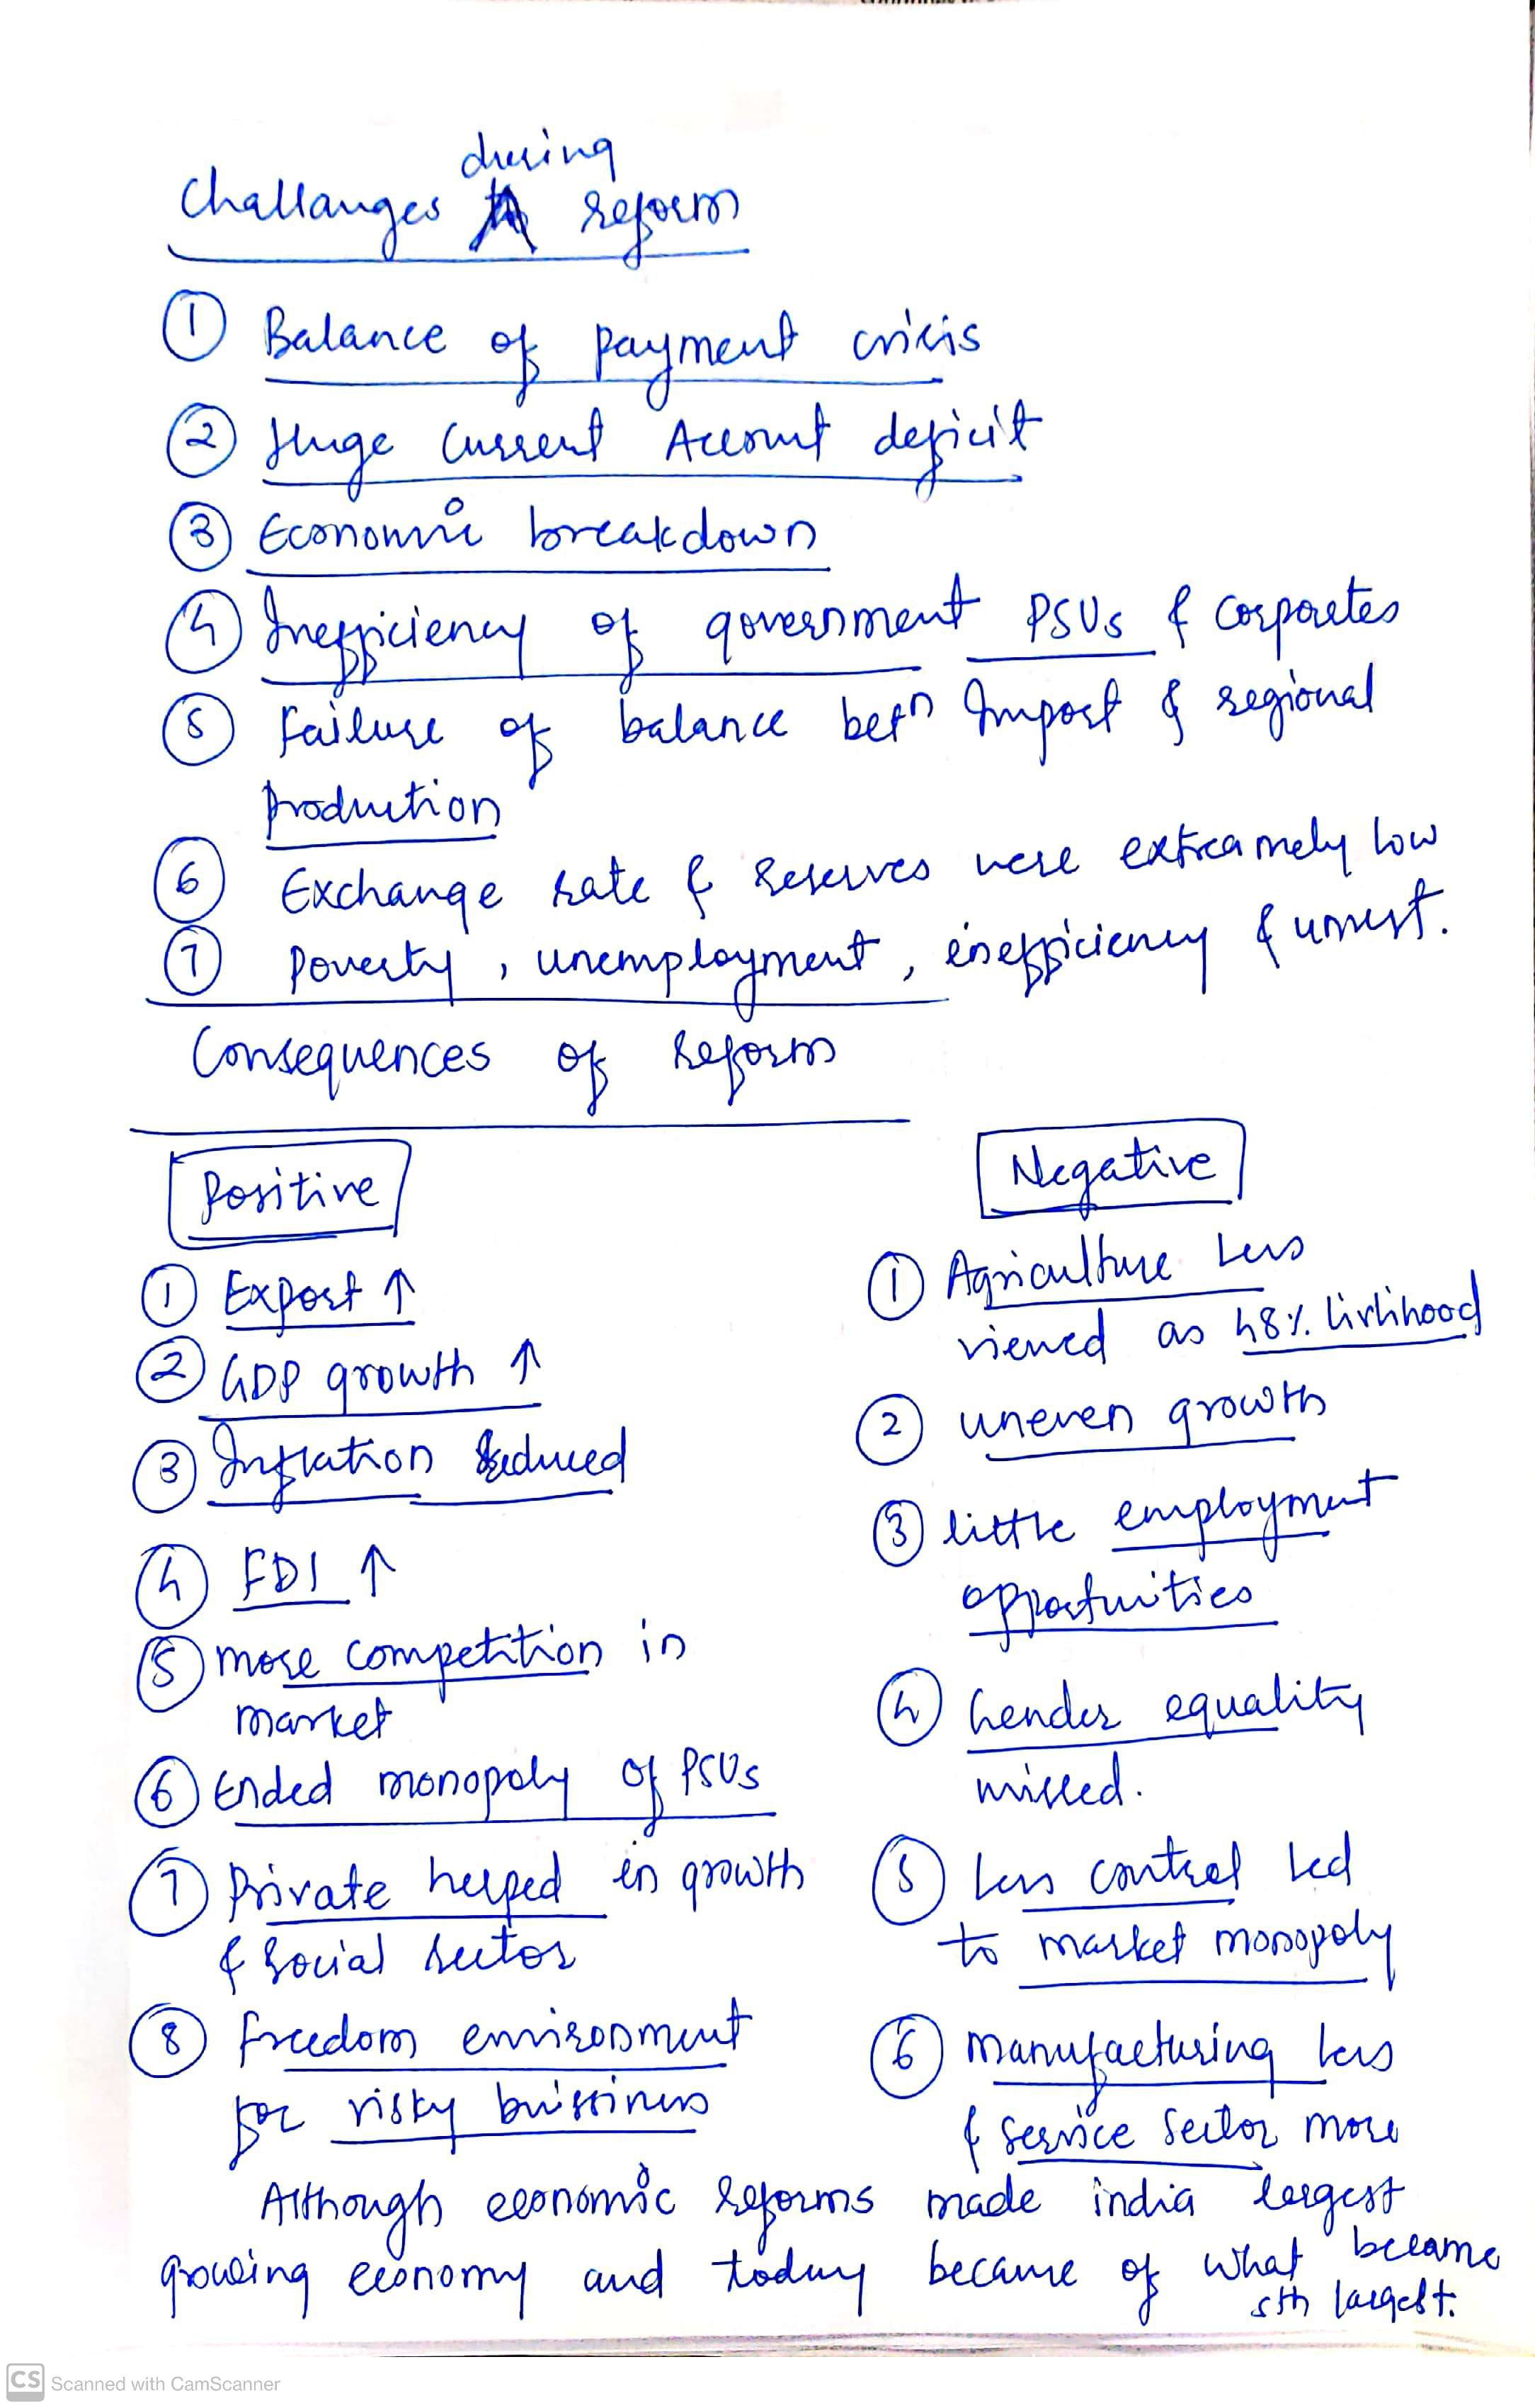 during
Challanges reform
① Balance of payment crisis
② Huge Current Account deficit
③ Economic breakdown
④ Inefficiency of government PSUs & Corporetes
⑤ Failure of balance betn Import & regional
production
⑥ Exchange rate & reserves were extreamely low
⑦ Poverty, unemployment, inefficiency & unrest.
Consequences of reform
Positive
① Export ↑
② GDP growth ↑
③ Inflation reduced
④ FDI ↑
⑤ more competition in
market
⑥ Ended monopoly of PSUs
⑦ Private helped in growth
& social sector
⑧ freedom environment
for risky bussiness
Negative
① Agriculture less
viewed as 48% livlihood
② uneven growth
③ little employment
opportunities
④ Gender equality
missed.
⑤ less control led
to market monopoly
⑥ manufacturing less
& service sector more
Although economic reforms made india largest
growing economy and today because of what became
5th largest.
CS Scanned with CamScanner